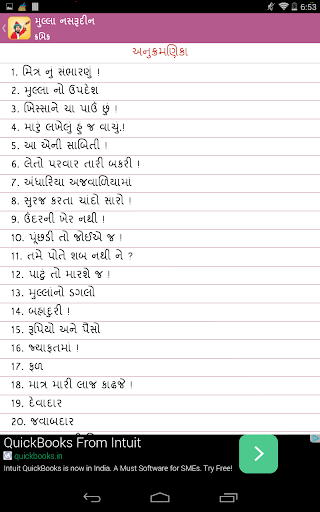 6:53
મુલ્લા નસરૂદીન
ક્રમિક
અનુક્રમણિકા
1. મિત્ર નુ સંભારણું !
2. મુલ્લા નો ઉપદેશ
3. ખિસ્સાને ચા પાઉં છું !
4. મારું લખેલું હું જ વાચું.!
5. આ એની સાબિતી !
6. લેતો પરવાર તારી બકરી !
7. અંધારિયા અજવાળિયામાં
8. સુરજ કરતા ચાંદો સારો !
9. ઉંદરની ખેર નથી !
10. પૂંછડી તો જોઈએ જ !
11. તમે પોતે શબ નથી ને ?
12. પાટુ તો મારશે જ !
13. મુલ્લાંનો ડગલો
14. બહાદુરી !
15. રૂપિયો અને પૈસો
16. જ્યાફતમાં !
17. ફળ
18. માત્ર મારી લાજ કાઢજે !
19. દેવાદાર
20. જવાબદાર
QuickBooks From Intuit
quickbooks.in
Intuit QuickBooks is now in India. A Must Software for SMEs. Try Free!